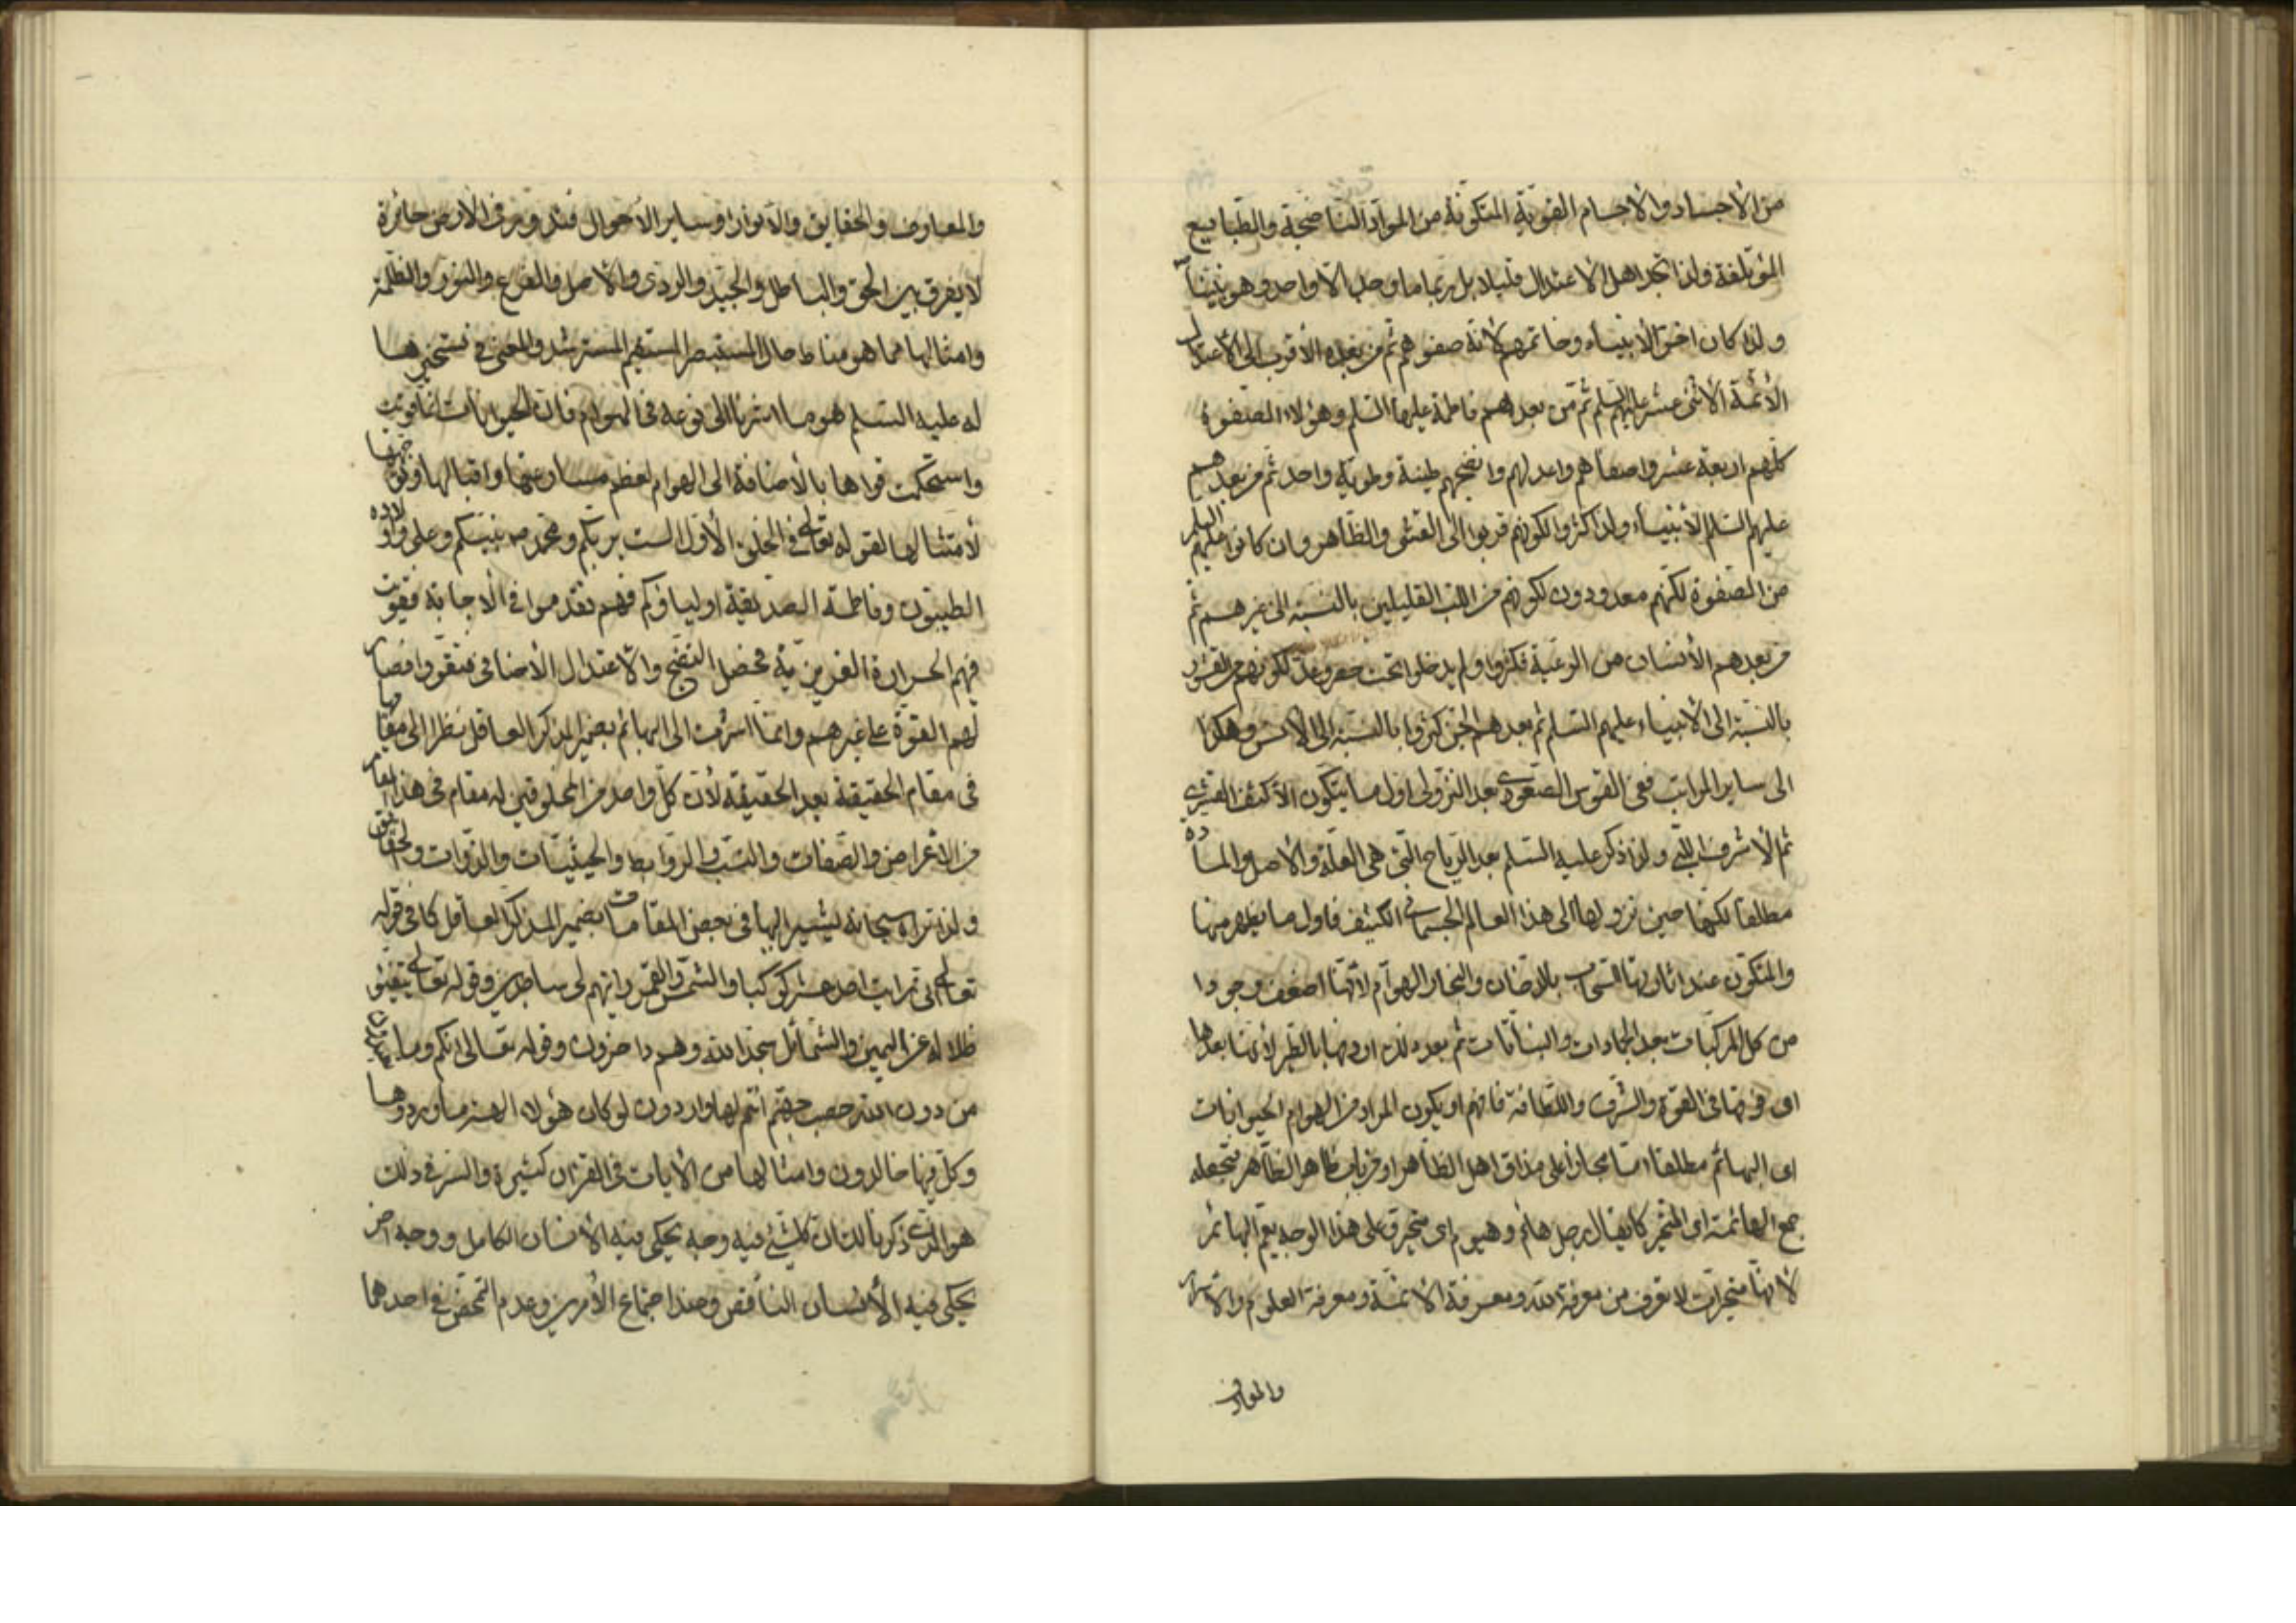 من الأجساد والأجسام القوية المتكونة من المواد الناضجة والطبايع
المؤتلفة ولذا تجد اهل الاعتدال قليلا بل ربما ما وجد الا واحد وهو نبينا
ولذا كان اخر الأنبياء وخاتمهم لأنه صفوهم ثم من بعده الأقرب الى الأعتدال
الأئمة الأثنى عشر عليهم السلم ثم من بعدهم فاطمة عليها السلم وهؤلاء الصفوة
كلهم اربعة عشر واصفاهم واعدلهم وانضجهم طينة وطوية واحد ثم من بعدهم
عليهم السلم الأنبياء ولذا كثروا لكونهم قربوا الى القشر والظاهر وان كانوا عليهم السلم
من الصفوة لكنهم معدودون لكونهم من اللب القليلين بالنسبة الى غيرهم ثم
من بعدهم الأنسان من الرعية فكثروا ولم يدخلوا تحت حصر وعد لكونهم من القشور
بالنسبة الى الأنبياء عليهم السلم ثم بعدهم الجن كثروا بالنسبة الى الأنس وهكذا
الى ساير المراتب ففي القوس الصعودي بعد النزولي اول ما يتكون الأكثف القشري
ثم الأشرف اللبي ولذا ذكر عليه السلم بعد الرياح التي هي العلة والأصل والمادة
مطلقا لكنها حين نزولها الى هذا العالم الجسماني الكثيف فاول ما يظهر منها
والمتكون عند اثارتها السحاب بالدخان والبخار الهوام لأنها اضعف وجودا
من كل المركبات بعد الجمادات والنباتات ثم بعد ذلك اردفها بالطير لأنها بعدها
اى فوقها في القوة والشرف واللطافة فافهم او يكون المراد من الهوام الحيوانات
اى البهائم مطلقا اما مجازا على مذاق اهل الظاهر او من باب ظاهر الظاهر بجعله
جمع الهائمة اى المتحير كما يقال رجل هائم وهيوم اى متحير وعلى هذا الوجه يعم البهائم
لأنها متحيرات لا تعرف من معرفة الله ومعرفة الأئمة ومعرفة العلوم والأسرار
والمعارف
والمعارف والحقايق والأنوار وساير الأحوال فتدور في الأرض حائرة
لا يفرق بين الحق والباطل والجيد والردى والأصل والفرع والنور والظلمة
وامثالها مما هو مناط حال المستبصر المستفهم المسترشد والمعنى في تسخيرها
له عليه السلم هو ما اشرنا الى نوعه في الهوام فان الحيوانات لما قويت
واستحكمت قواها بالأضافة الى الهوام لعظم مسارعتها واقبالها وتوجهها
لأمتثالها لقوله تعالى في الخلق الأول الست بربكم ومحمد ص نبيكم وعلى واولاده
الطيبون وفاطمة الصديقة اولياؤكم فهم تقدموا في الأجابة فقويت
فيهم الحرارة الغريزية فحصل النضج والأعتدال الأضافي فتقووا فصار
لهم القوة على غيرهم وانما اشرت الى البهائم بضمير المذكر العاقل نظرا الى مقامها
في مقام الحقيقة بعد الحقيقة لأن كل واحد من المخلوقين له مقام في هذا المقام
من الأعراض والصفات والنسب والروابط والحيثيات والذوات والحقايق
ولذا تراه سبحانه يشير اليها في بعض المقامات بضمير المذكر العاقل كما في قوله
تعالى انى رايت احد عشر كوكبا والشمس والقمر رايتهم لى ساجدين وقوله تعالى يتفيؤ
ظلاله عن اليمين والشمائل سجدا لله وهم داخرون وقوله تعالى انكم وما تعبدون
من دون الله حصب جهنم انتم لها واردون لو كان هؤلاء الهة ما وردوها
وكل فيها خالدون وامثالها من الأيات في القران كثيرة والسر في ذلك
هو الذى ذكرنا لك ان كل شئ فيه وجه يحكى فيه الأنسان الكامل ووجه اخر
يحكى فيه الأنسان الناقص وعند اجتماع الأمرين وعدم التمحض في احدهما